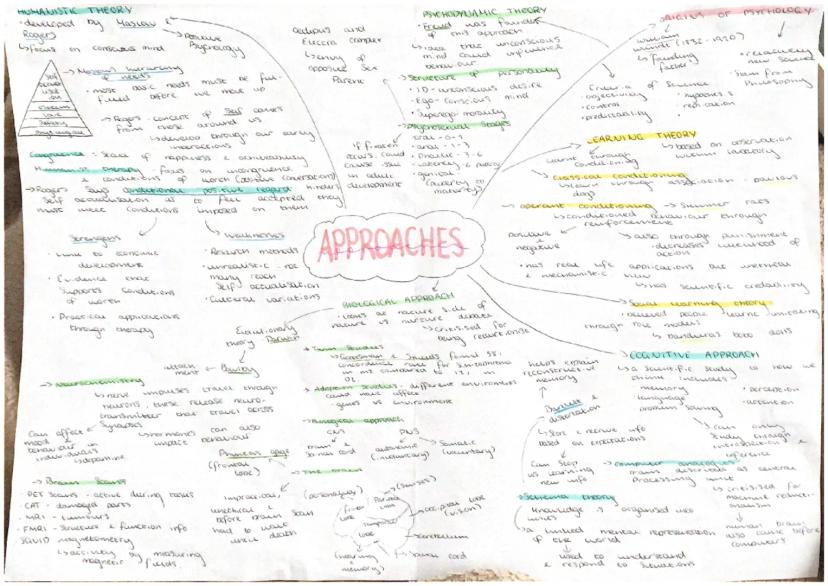 HUMANISTIC THEORY
• developed by Maslow &
Rogers
↳ focus on conscious mind
→ Positive
Psychology
→ Maslow's hierarchy
of needs
• most basic needs must be ful-
filled before we move up
esteem
Love
Safety
• Rogers - concept of self comes
from those around us
↳ develop through our early
interactions
Congruence: state of happiness &
Humanistic therapy focus on incongruence
& conditions of worth
→ Rogers says conditional positive regard hinders
self actualisation as to feel accepted they
must meet conditions imposed on them
Strengths
• links to economic
development
• Evidence that
supports conditions
of worth
• Practical applications
through therapy
Weaknesses
• Research methods
• unrealistic - not
many reach
self actualisation
• Cultural variations
Oedipus and
Electra complex
↳ envy of
opposite sex
Parent
PSYCHODYNAMIC THEORY
• Freud was founder
of this approach
• idea that unconscious
mind could influence
behaviour
→ Structure of personality
• ID - unconscious desire
• Ego - conscious mind
• Superego morality
→ Psychosexual Stages
• oral - 0-1
• anal - 1-3
• Phallic - 3-6
• Latency - 6-puberty
• genital
(puberty to
maturity)
if fixation
occurs, could
cause issue
in adult
development
ORIGINS OF PSYCHOLOGY
William
Wundt (1832-1920)
↳ founding
father
• relatively
new science
• stem from
philosophy
Criteria of Science
• objectivity
• control
• predictability
• hypothesis
• replication
LEARNING THEORY
learnt through
conditioning
↳ based on observation
within laboratory
→ classical conditioning
↳ learn through association - pavlovs
dogs
→ operant conditioning → Skinner rats
↳ conditioned behaviour through
reinforcement
Positive
&
negative
↳ also through punishment
- decreases likelihood of
action
• not real life applications but
& mechanistic view
↳ has scientific credability
→ Social learning theory
• allowed people learnt imitating
through role models
↳ banduras bobo dolls
APPROACHES
BIOLOGICAL APPROACH
• looks at nature side of
nature vs nurture debate
↳ criticised for
being reductionist
Evolutionary
theory Darwin
→ Twin Studies
↳ Gottesman & Shields found 58%
concordance rate for
in MZ compared to 12% in
DZ
→ Adoption studies - different environment
could have affect
• genes vs environment
→ Biological approach
CNS
brain &
spinal cord
PNS
autonomic
(involuntary)
Somatic
(voluntary)
attach-
ment ← Bowlby
→ Neurochemistry
↳ nerve impulses travel through
neurons, these release neuro-
transmitter that travel across
Synapses
Can affect
mood &
behaviour in
individuals
↳ dopamine
↳ hormones can also
impact
behaviour
Phineas Gage
(frontal
lobe)
→ The brain
impractical,
unethical &
before brain scan
had to wait
until death
(personality)
frontal
lobe
(senses)
Parietal
lobe
occipital lobe
(vision)
temporal
lobe
(hearing
& memory)
cerebellum
Spinal cord
→ Brain Scans
PET Scans - active during tasks
CAT - damaged parts
MRI - tumours
FMRI - Structure & function info
SQUID magnetometry
↳ activity by measuring
magnetic fields
→ COGNITIVE APPROACH
↳ a scientific study to how we
think - includes
• memory
• language
• problem solving
• perception
• attention
helps explain
reconstructive
memory
Bartlett &
distortation
↳ Store & retrieve info
based on expectations
can stop
us learning
new info
↳ can only
study through
introspection &
inference
→ computer analogies
mains described as several
processing unit
↳ criticised for
machine reduct-
ionism
human brain
also came before
computers
→ Schema theory
knowledge is organised into
units
↳ a linked mental representation
of the world
used to understand
& respond to situations